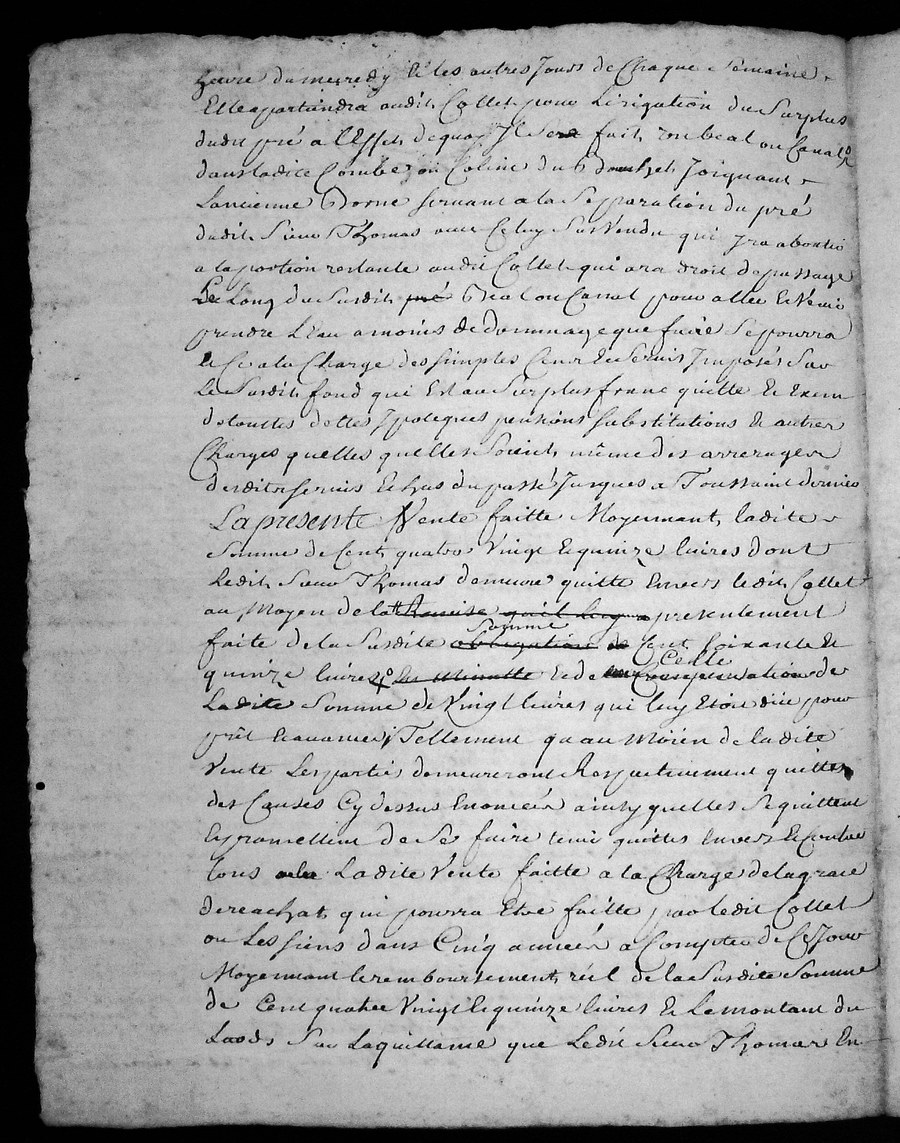 heure du mecredy & les autres Jours de Chaque Semaine
Elle apartiendra audit Collet pour L'irigation du Surplus
dudit pré a l'Effet de quoy Il Sera fait un beal ou Canal
dans ladite Combe ou Coline du Bouchet Joignant
Lancienne Borne servant a la Separation du pré
dudit Sieur Thomas avec Celuy Sus Vendu qui Ira aboutir
a la portion restante audit Collet qui ara droit de passage
Le Long du Susdit pré Beal ou Canal pour aller & Venir
prendre L'Eau a moins de dommage que faire Se pourra
& Ce a la Charge des simples Cens & Servis Imposés Sur
Le Susdit fond qui Est au Surplus franc quitte & Exem
de touttes dettes Ipoteques pensions substitutions & autres
Charges quelles quelles Soient même des arrerages
desdits servis Echus du passé Jusques a Toussaint dernier
La presente Vente faitte Moyennant ladite
Somme de Cent quatre Vingt & quinze livres dont
Ledit Sieur Thomas demeure quitte Envers ledit Collet
au Moyen de la Remise quil luy a presentement
faite de la Susdite obligation de Somme Cent Soixante &
quinze livres & de Celle Compensation de
Ladite Somme de Vingt livres qui luy Etoit düe pour
prêt & avance; Tellement qu au Moïen de la dite
Vente Les parties demeureront Respectivement quittes
des Causes Cy dessus Enoncées ainsy quelles Se quittent
& promettent de Se faire tenir quittes Envers & Contre
tous Ladite Vente faitte a la Charge de la grace
de reachat qui pourra Etre faitte par ledit Collet
ou Les siens dans Cinq années a Compter de Ce Jour
Moyennant le remboursement réel de la Susdite Somme
de Cent quatre Vingt & quinze livres & Le montant du
Laods Sur La quittance que Ledit Sieur Thomas En